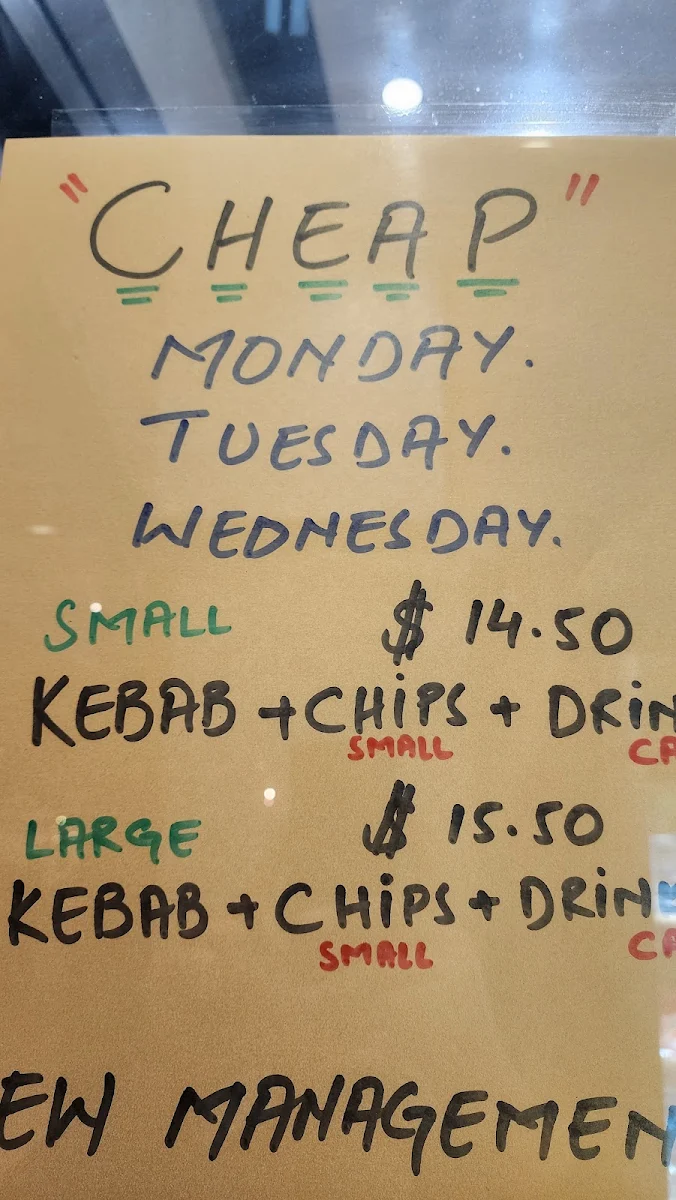 "CHEAP"
MONDAY.
TUESDAY.
WEDNESDAY.
SMALL $ 14.50
KEBAB + CHiPS + DRiN
SMALL CA
LARGE $ 15.50
KEBAB + CHiPS + DRiN
SMALL CA
EW MANAGEMEN